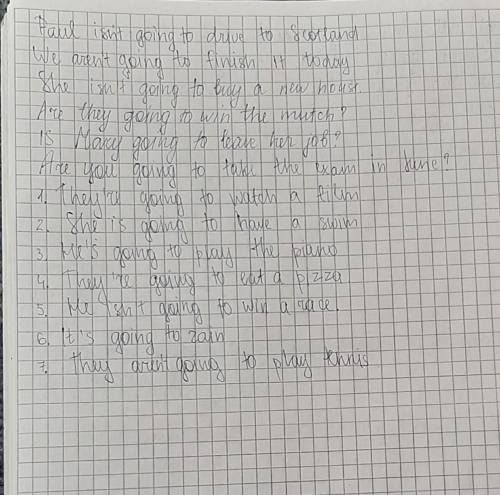 Paul isn't going to drive to Scotland
We aren't going to finish it today
She isn't going to buy a new house
Are they going to win the mutch?
Is Mary going to leave her job?
Are you going to take the exam in June?
1. They're going to watch a film
2. She is going to have a swim
3. He's going to play the piano
4. They're going to eat a pizza
5. He isn't going to win a race.
6. It's going to rain
7. They aren't going to play tennis